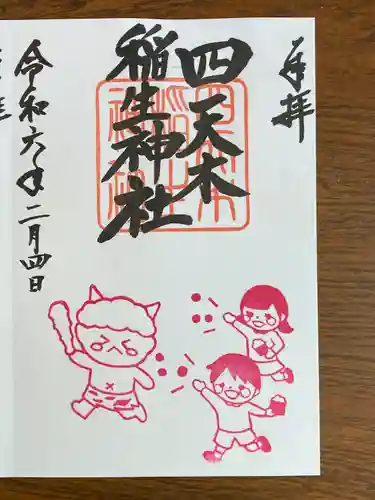 奉拝
四天木
稲生神社
令和六年二月四日